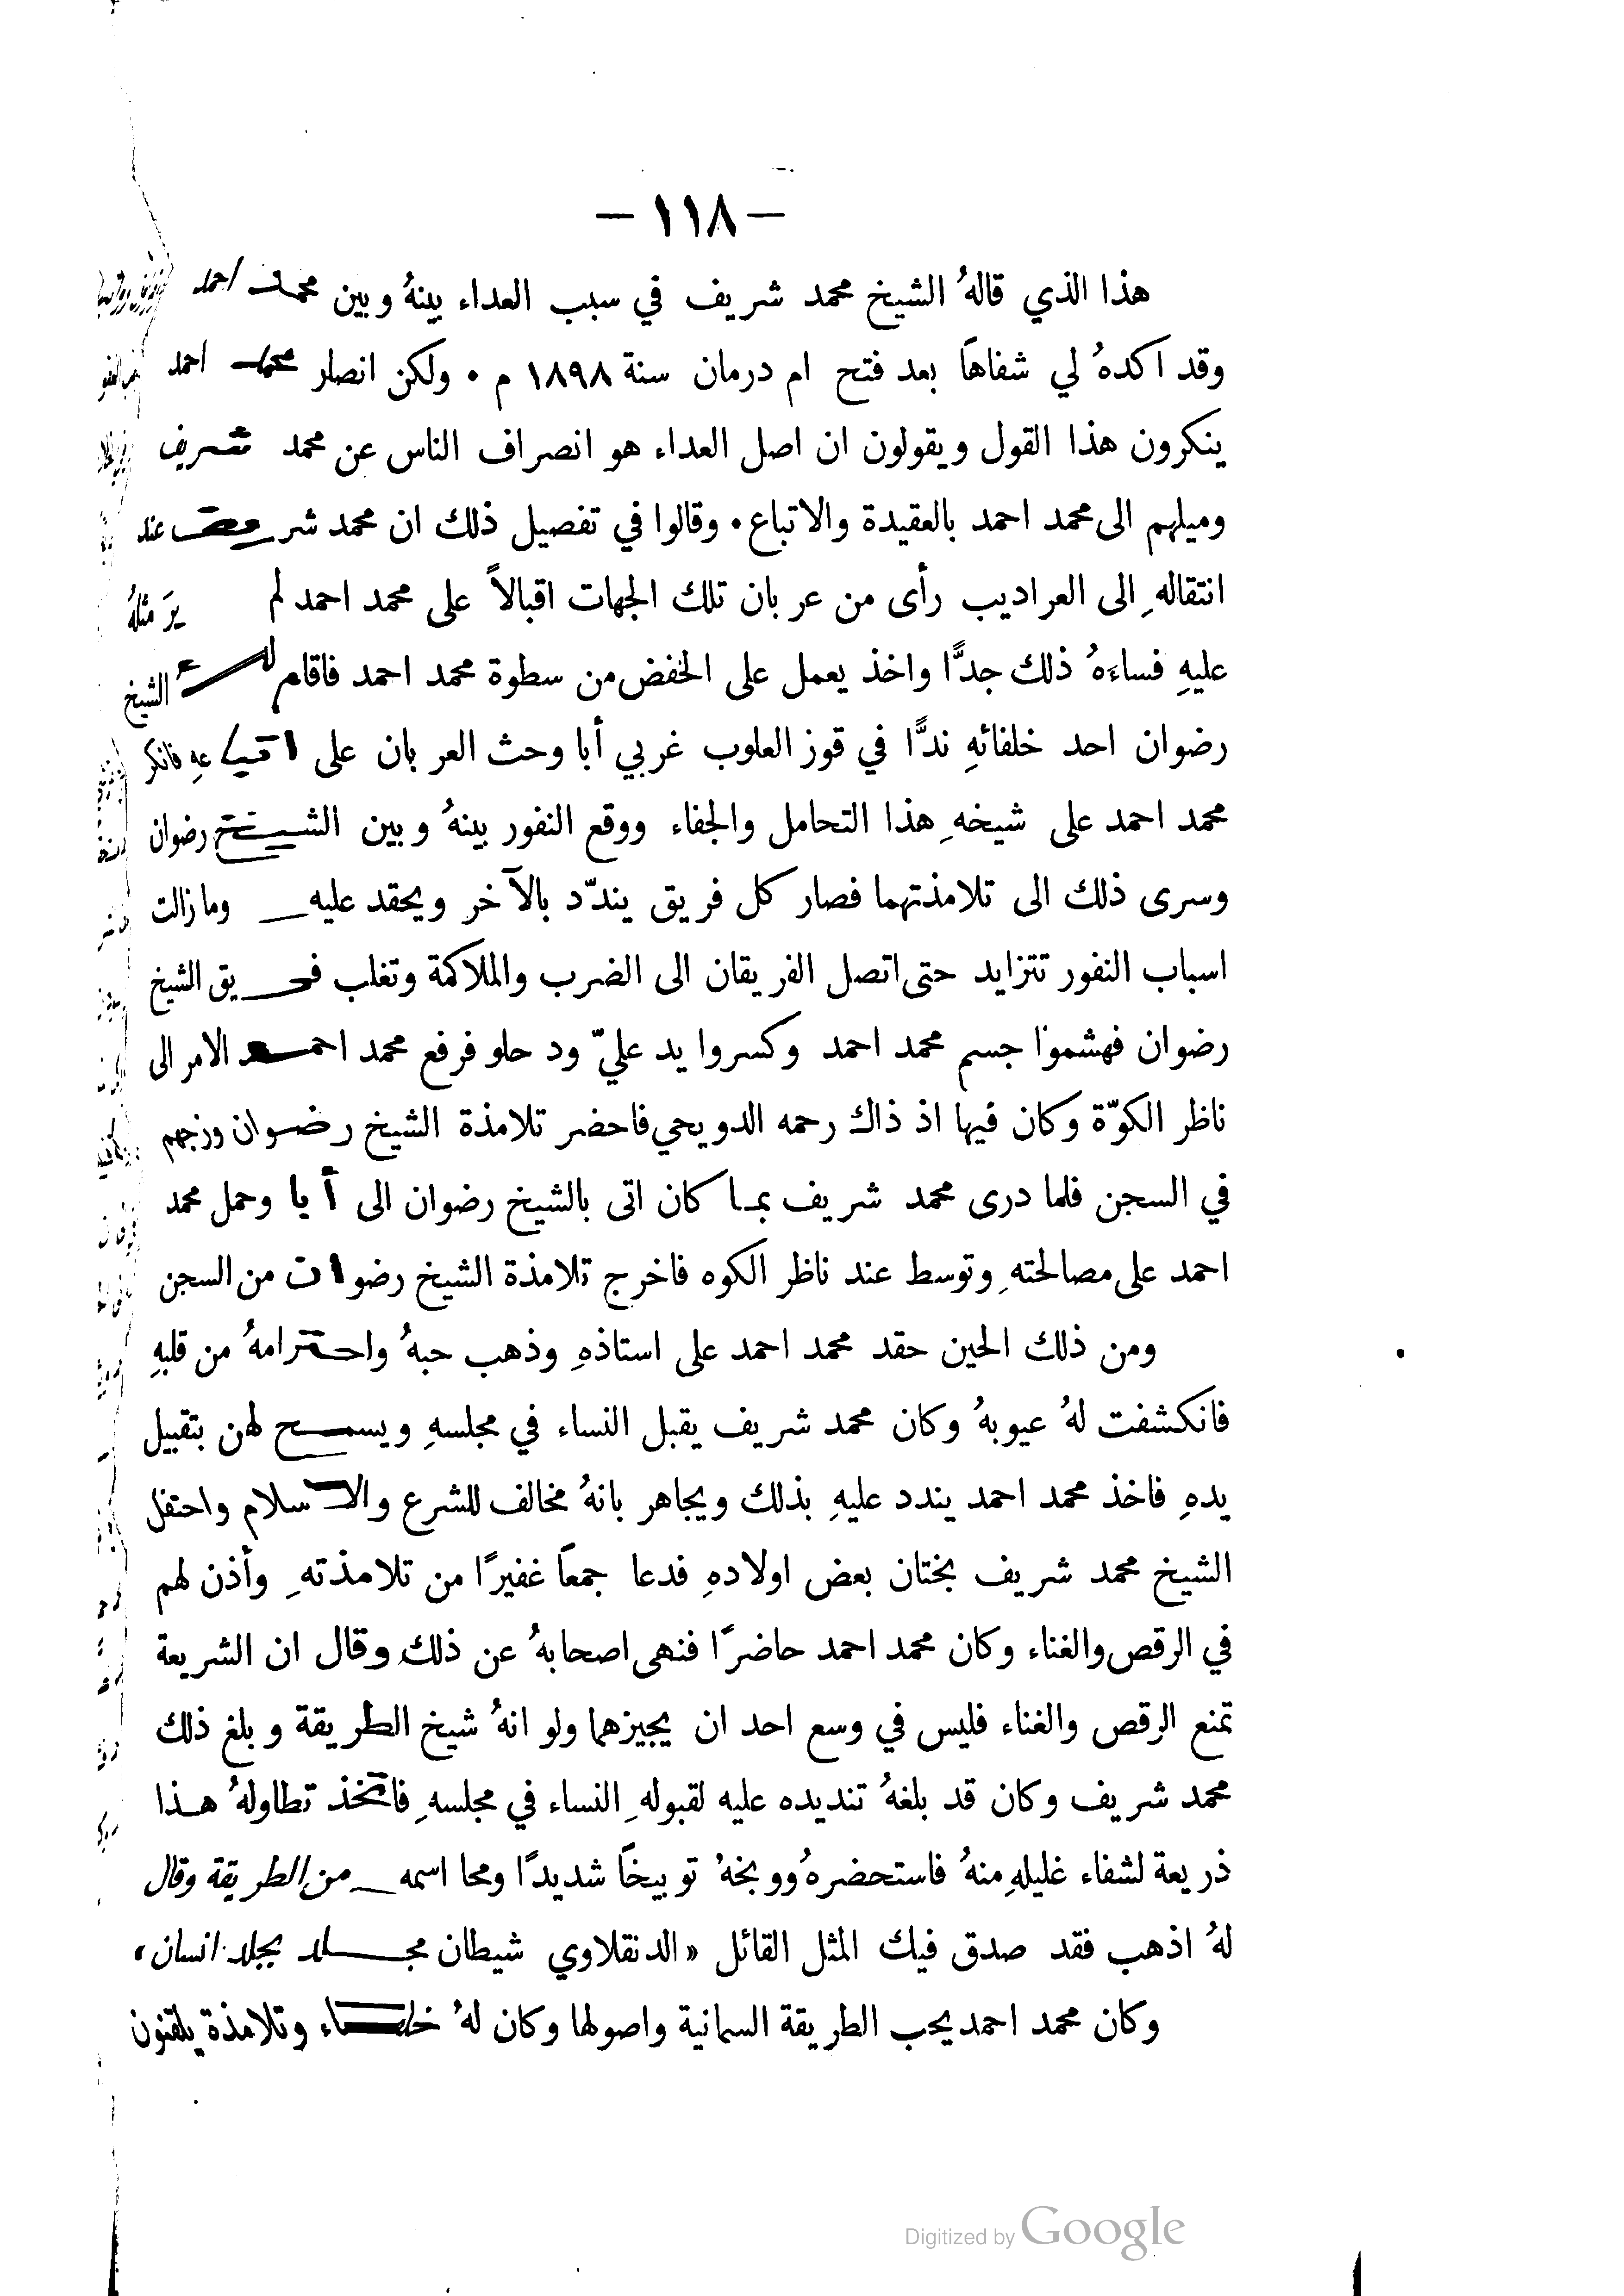 — ١١٨ —
هذا الذي قالهُ الشيخ محمد شريف في سبب العداء بينهُ وبين محمد احمد
وقد اكدهُ لي شفاهًا بعد فتح ام درمان سنة ١٨٩٨ م . ولكن انصار محمد احمد
ينكرون هذا القول ويقولون ان اصل العداء هو انصراف الناس عن محمد شريف
وميلهم الى محمد احمد بالعقيدة والاتباع . وقالوا في تفصيل ذلك ان محمد شريف عند
انتقالهِ الى العراديب رأى من عربان تلك الجهات اقبالاً على محمد احمد لم يرَ مثلهُ
عليهِ فساءَهُ ذلك جدًّا واخذ يعمل على الخفض من سطوة محمد احمد فاقام لهُ الشيخ
رضوان احد خلفائهِ ندًّا في قوز العلوب غربي أبا وحث العربان على اتباعهِ فانكر
محمد احمد على شيخهِ هذا التحامل والجفاء ووقع النفور بينهُ وبين الشيخ رضوان
وسرى ذلك الى تلامذتهما فصار كل فريق يندّد بالآخر ويحقد عليه وما زالت
اسباب النفور تتزايد حتى اتصل الفريقان الى الضرب والملاكمة وتغلب فريق الشيخ
رضوان فهشموا جسم محمد احمد وكسروا يد عليّ ود حلو فرفع محمد احمد الامر الى
ناظر الكوّة وكان فيها اذ ذاك رحمه الدويحي فاحضر تلامذة الشيخ رضوان وزجهم
في السجن فلما درى محمد شريف بما كان اتى بالشيخ رضوان الى أبا وحمل محمد
احمد على مصالحتهِ وتوسط عند ناظر الكوه فاخرج تلامذة الشيخ رضوان من السجن
ومن ذلك الحين حقد محمد احمد على استاذهِ وذهب حبهُ واحترامهُ من قلبهِ
فانكشفت لهُ عيوبهُ وكان محمد شريف يقبل النساء في مجلسهِ ويسمح لهن بتقبيل
يدهِ فاخذ محمد احمد يندد عليهِ بذلك ويجاهر بانهُ مخالف للشرع والاسلام واحتفل
الشيخ محمد شريف بختان بعض اولادهِ فدعا جمعًا غفيرًا من تلامذتهِ وأذن لهم
في الرقص والغناء وكان محمد احمد حاضرًا فنهى اصحابهُ عن ذلك وقال ان الشريعة
تمنع الرقص والغناء فليس في وسع احد ان يجيزهما ولو انهُ شيخ الطريقة وبلغ ذلك
محمد شريف وكان قد بلغهُ تنديده عليه لقبولهِ النساء في مجلسهِ فاتخذ تطاولهُ هذا
ذريعة لشفاء غليلهِ منهُ فاستحضرهُ ووبخهُ توبيخًا شديدًا ومحا اسمه من الطريقة وقال
لهُ اذهب فقد صدق فيك المثل القائل «الدنقلاوي شيطان مجلد بجلد انسان»
وكان محمد احمد يحب الطريقة السمانية واصولها وكان لهُ خلفاء وتلامذة يلقنون
Digitized by Google